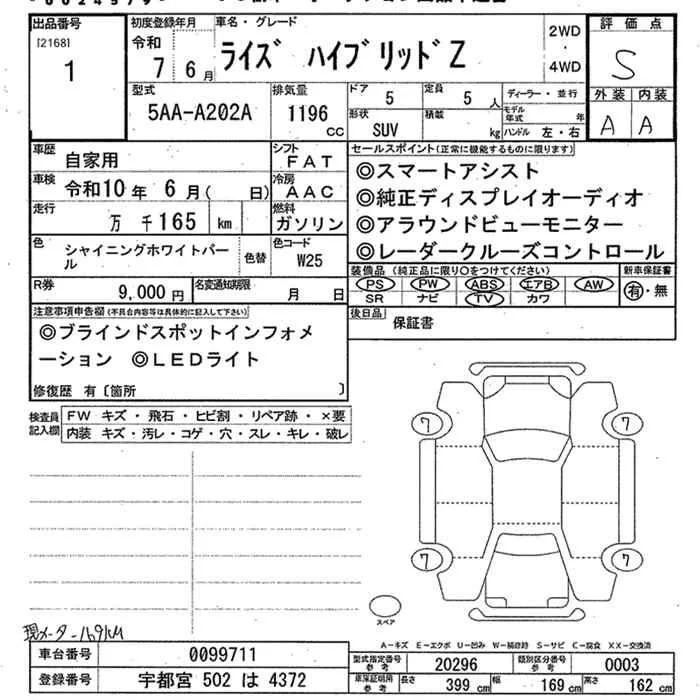 出品番号
[2168]
1
初度登録年月
令和
7 6月
車名・グレード
ライズ ハイブリッドZ
2WD
・
4WD
評価点
S
外装 内装
A A
型式
5AA-A202A
排気量
1196
CC
ドア
5
定員
5 人
形状
SUV
積載
kg
ディーラー・並行
モデル年式 年
ハンドル 左・右
車歴
自家用
シフト
FAT
車検
令和10年 6月( 日)
冷房
AAC
走行
万 千165 km
燃料
ガソリン
色
シャイニングホワイトパール
色替
色コード
W25
R券
9,000 円
名変通知期限
月 日
セールスポイント(正常に機能するものに限ります)
◎スマートアシスト
◎純正ディスプレイオーディオ
◎アラウンドビューモニター
◎レーダークルーズコントロール
装備品 (純正品に限り○をつけてください)
PS PW ABS エアB AW
SR ナビ TV カワ
新車保証書
有・無
後日品
保証書
注意事項申告欄(不具合内容等は具体的に記入して下さい)
◎ブラインドスポットインフォメ
ーション ◎LEDライト
修復歴 有〔箇所 〕
検査員
記入欄
FW キズ・飛石・ヒビ割・リペア跡・×要
内装 キズ・汚レ・コゲ・穴・スレ・キレ・破レ
7 7
7 7
スペア
現メーター169KM
A-キズ E-エクボ U-凹み W-補修跡 S-サビ C-腐食 XX-交換済
車台番号
0099711
登録番号
宇都宮 502 は 4372
型式指定番号
参考
20296
類別区分番号
参考
0003
車庫証明用
参考
長さ
399 cm
幅
169 cm
高さ
162 cm